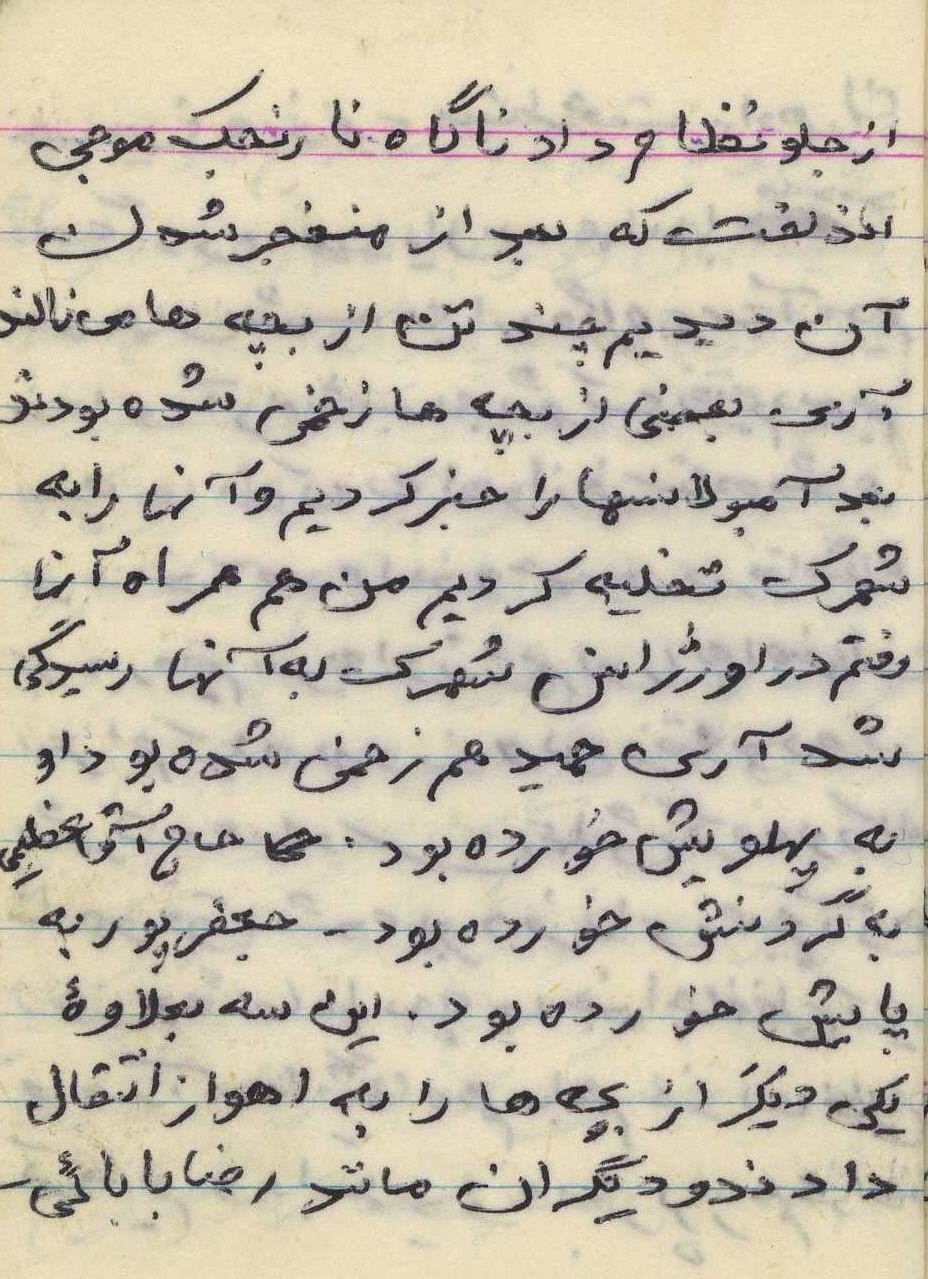 از جلو نظام داد ناگاه نارنجک موجی
انداخت که بعد از منفجر شدن
آن دیدیم چند تن از بچه ها می نالند
آری. بعضی از بچه ها زخمی شده بودند
بعد آمبولانسها را خبر کردیم و آنها را به
شهرک تخلیه کردیم من هم همراه آنها
رفتم در اورژانس شهرک به آنها رسیدگی
شد آری حمید هم زخمی شده بود او
به پهلویش خورده بود. حاج آقا عظیمی
به گردنش خورده بود - جعفرپور به
پایش خورده بود. این سه بعلاوهٔ
یکی دیگر از بچه ها را به اهواز انتقال
دادند و دیگران مانند رضا بابائی -